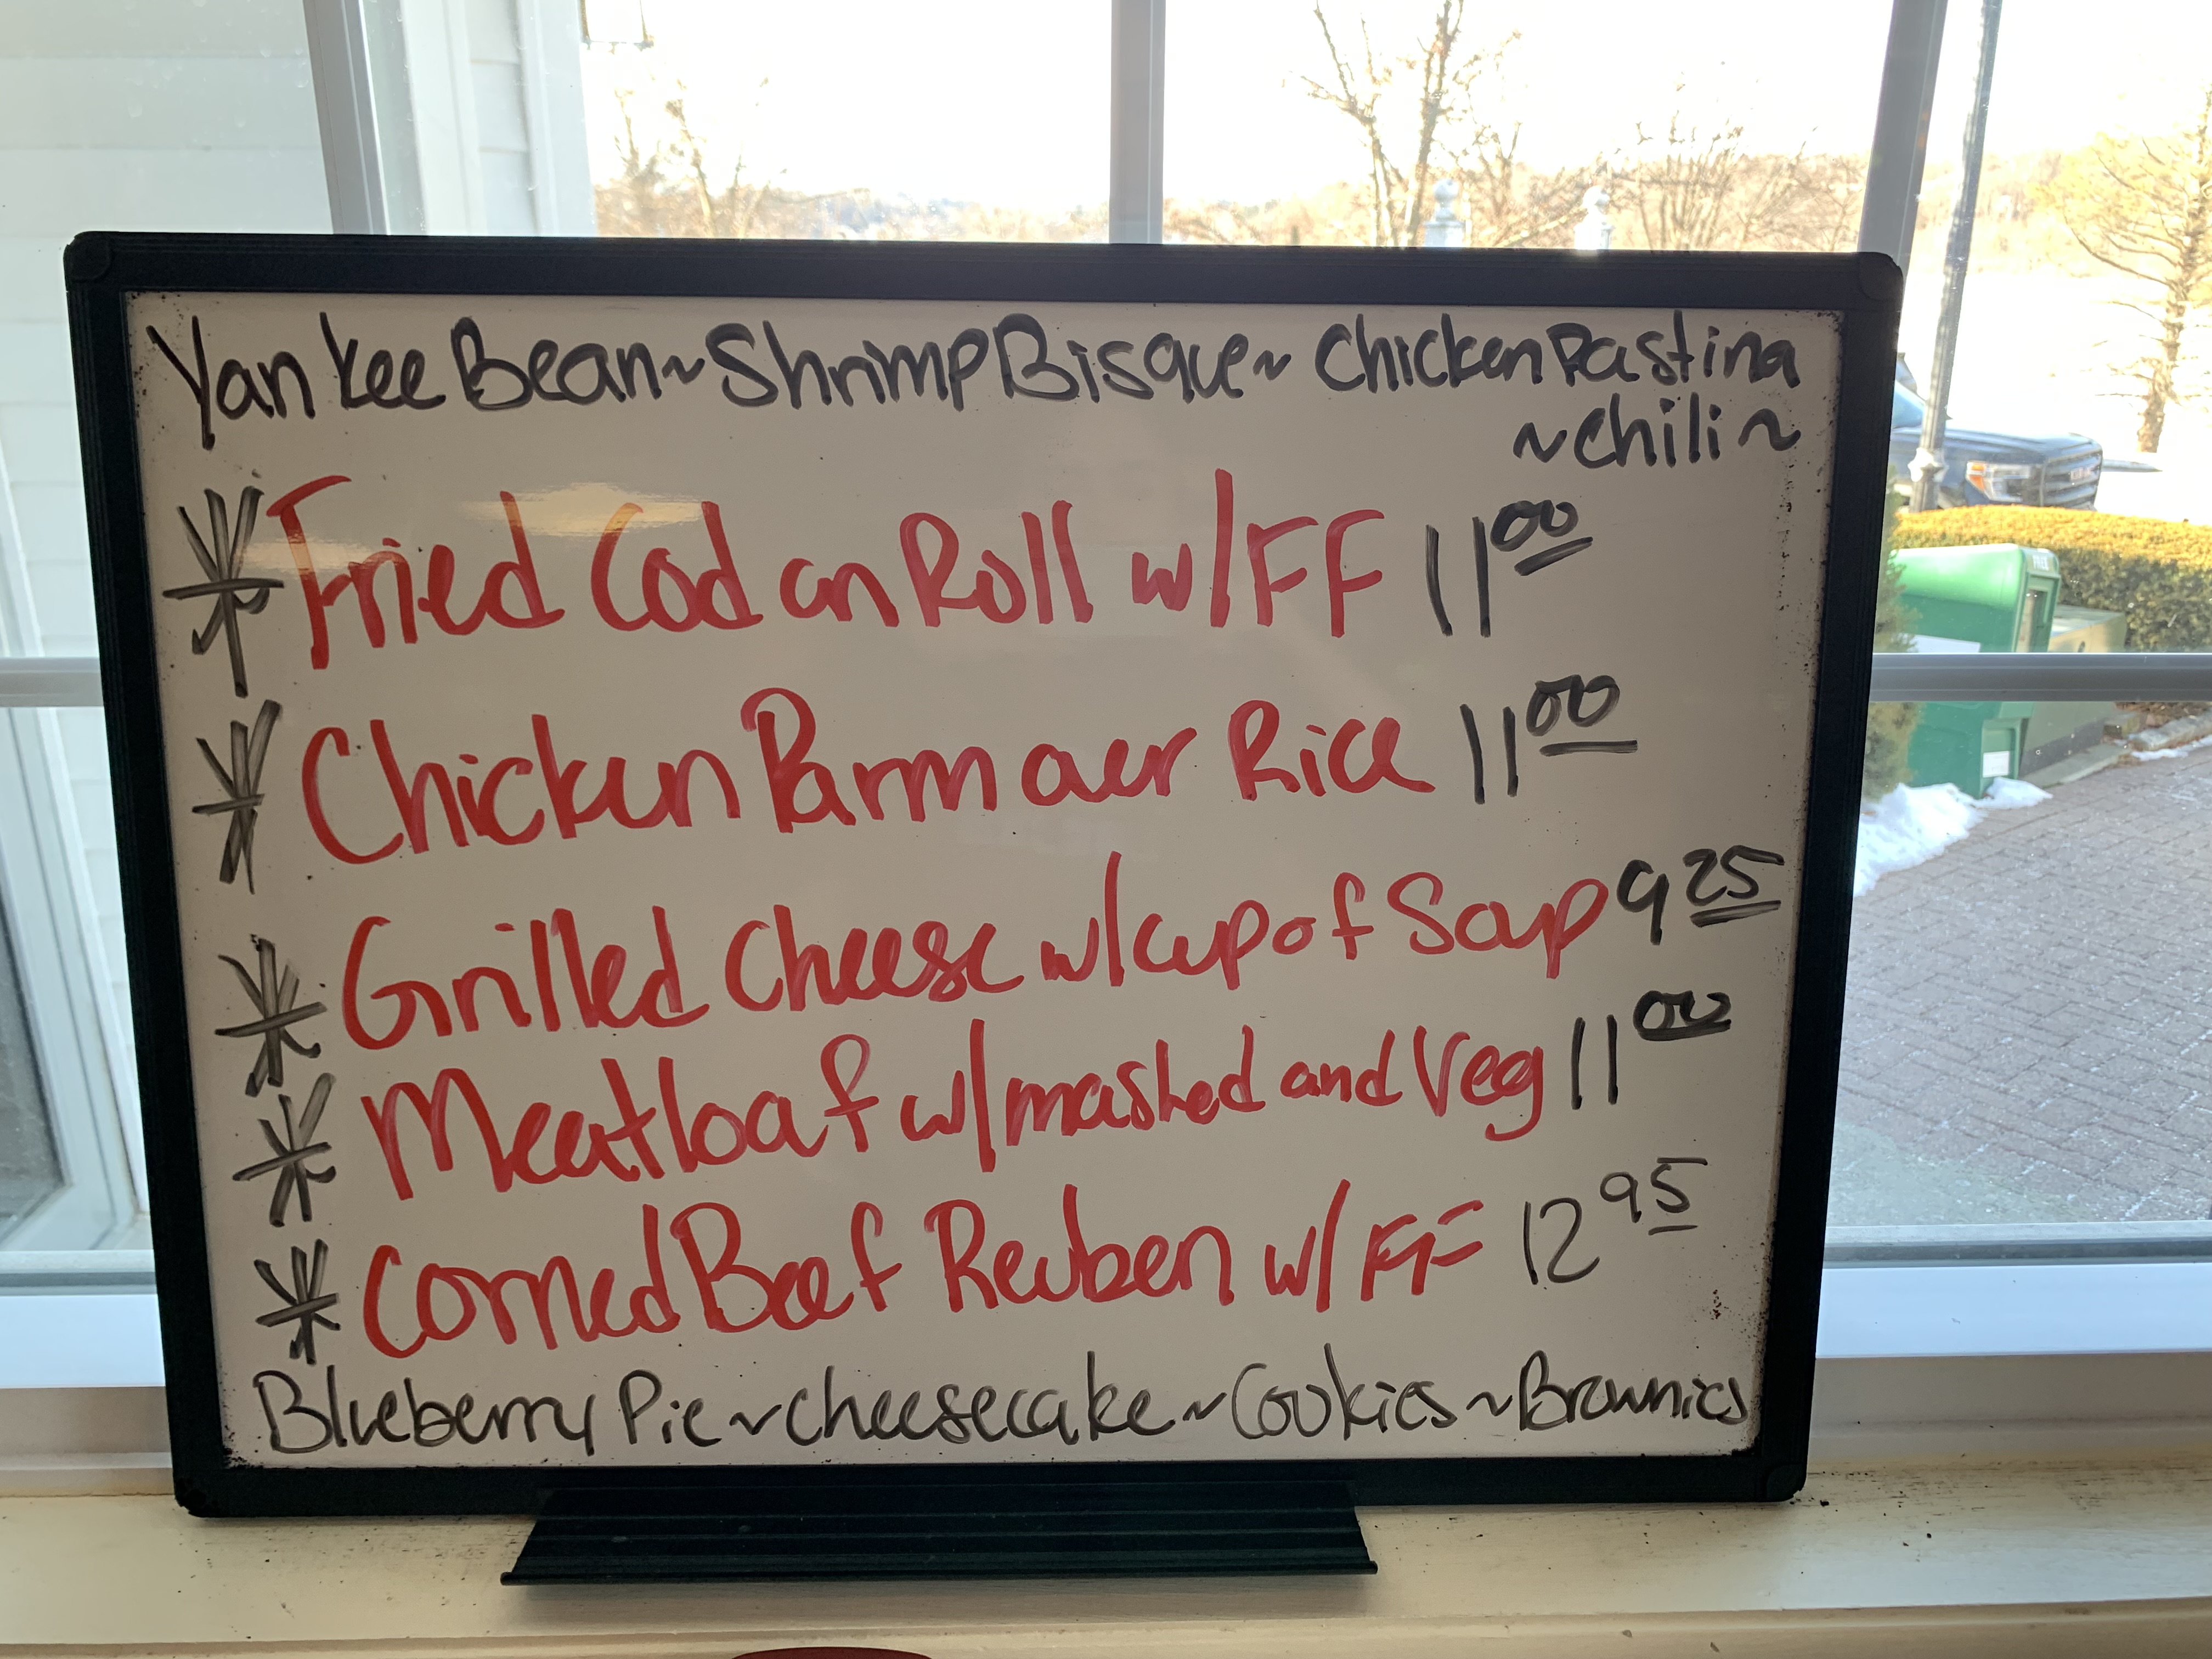 Yankee Bean ~ Shrimp Bisque ~ Chicken Pastina
~ Chili ~
* Fried Cod on Roll w/FF 11.00
* Chicken Parm over Rice 11.00
* Grilled Cheese w/cup of Soup 9.25
* Meatloaf w/mashed and Veg 11.00
* Corned Beef Reuben w/FF 12.95
Blueberry Pie ~ Cheesecake ~ Cookies ~ Brownies